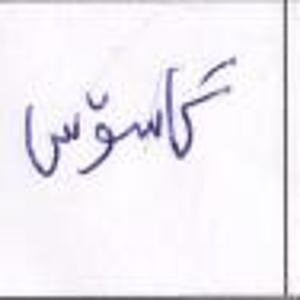 کاسۆس